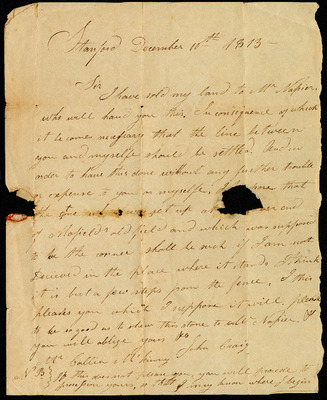 Stanford December 10th 1813
Sir
I have sold my land to Mr. Napier
who will hand you this. In consequence of which
it becomes necessary that the line between
you and myself should be settled. And in
order to have this done without any further trouble
or expense to you or myself, I propose that
the stone which was set up at the corner and
of Mayfields old field and which was supposed
to be the corner shall be such if I am not
deceived in the place where it stands I think
it is but a few steps from the fence. If this
pleases you which I suppose it will, please
to be so good as to shew this stone to Mr. Napier, &
you will oblige yours &c.
Mr. Colten McKinny John Craig
N. B. If this does not please you, you will provide to
procession yours, so that I may know where I begin